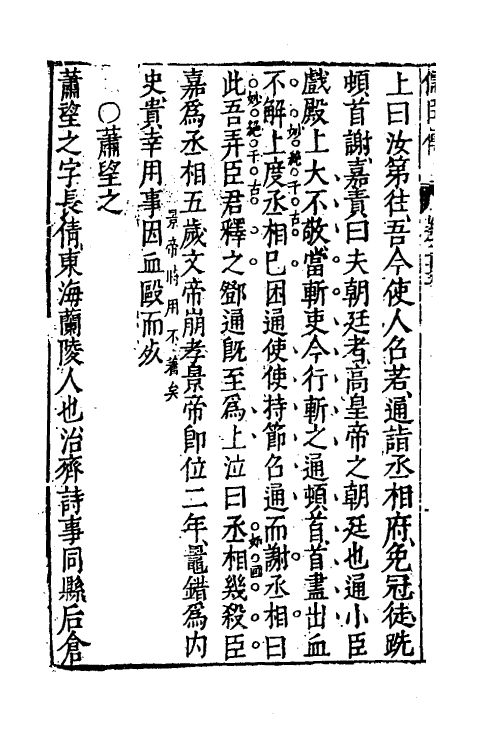 儒臣傳
上曰汝第往吾今使人召若通詣丞相府免冠徒跣
頓首謝嘉責曰夫朝廷者高皇帝之朝廷也通小臣
戲殿上大不敬當斬吏今行斬之通頓首首盡出血
妙絕千古
不解上度丞相已困通使使持節召通而謝丞相曰
妙絕千古
妙
此吾弄臣君釋之鄧通既至為上泣曰丞相幾殺臣
嘉為丞相五歲文帝崩孝景帝即位二年鼂錯為內
景帝時用不著矣
史貴幸用事因血毆而死
○蕭望之
蕭望之字長倩東海蘭陵人也治齊詩事同縣后倉